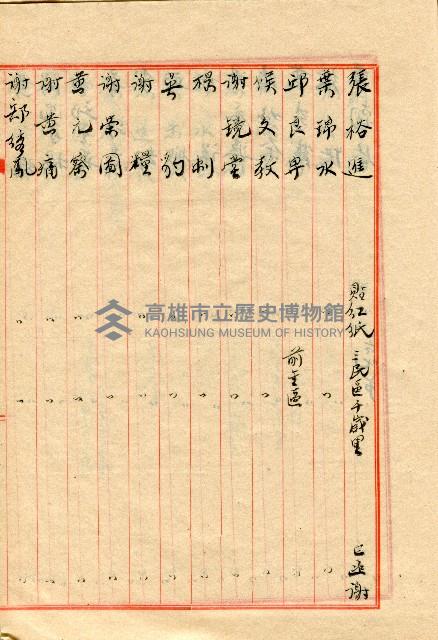 張裕進 貼紅紙 三民區千歲里 已函謝
葉瑞水 〃 〃 〃
邱良卑 前金區 〃
侯文教 〃 〃 〃
謝鏡堂 〃 〃 〃
利 〃 〃 〃
吳豹 〃 〃 〃
謝糧 〃 〃 〃
謝榮圖 〃 〃 〃
黃元 〃 〃 〃
謝黃 〃 〃 〃
謝鄭 〃 〃 〃
高雄市立歷史博物館
KAOHSIUNG MUSEUM OF HISTORY